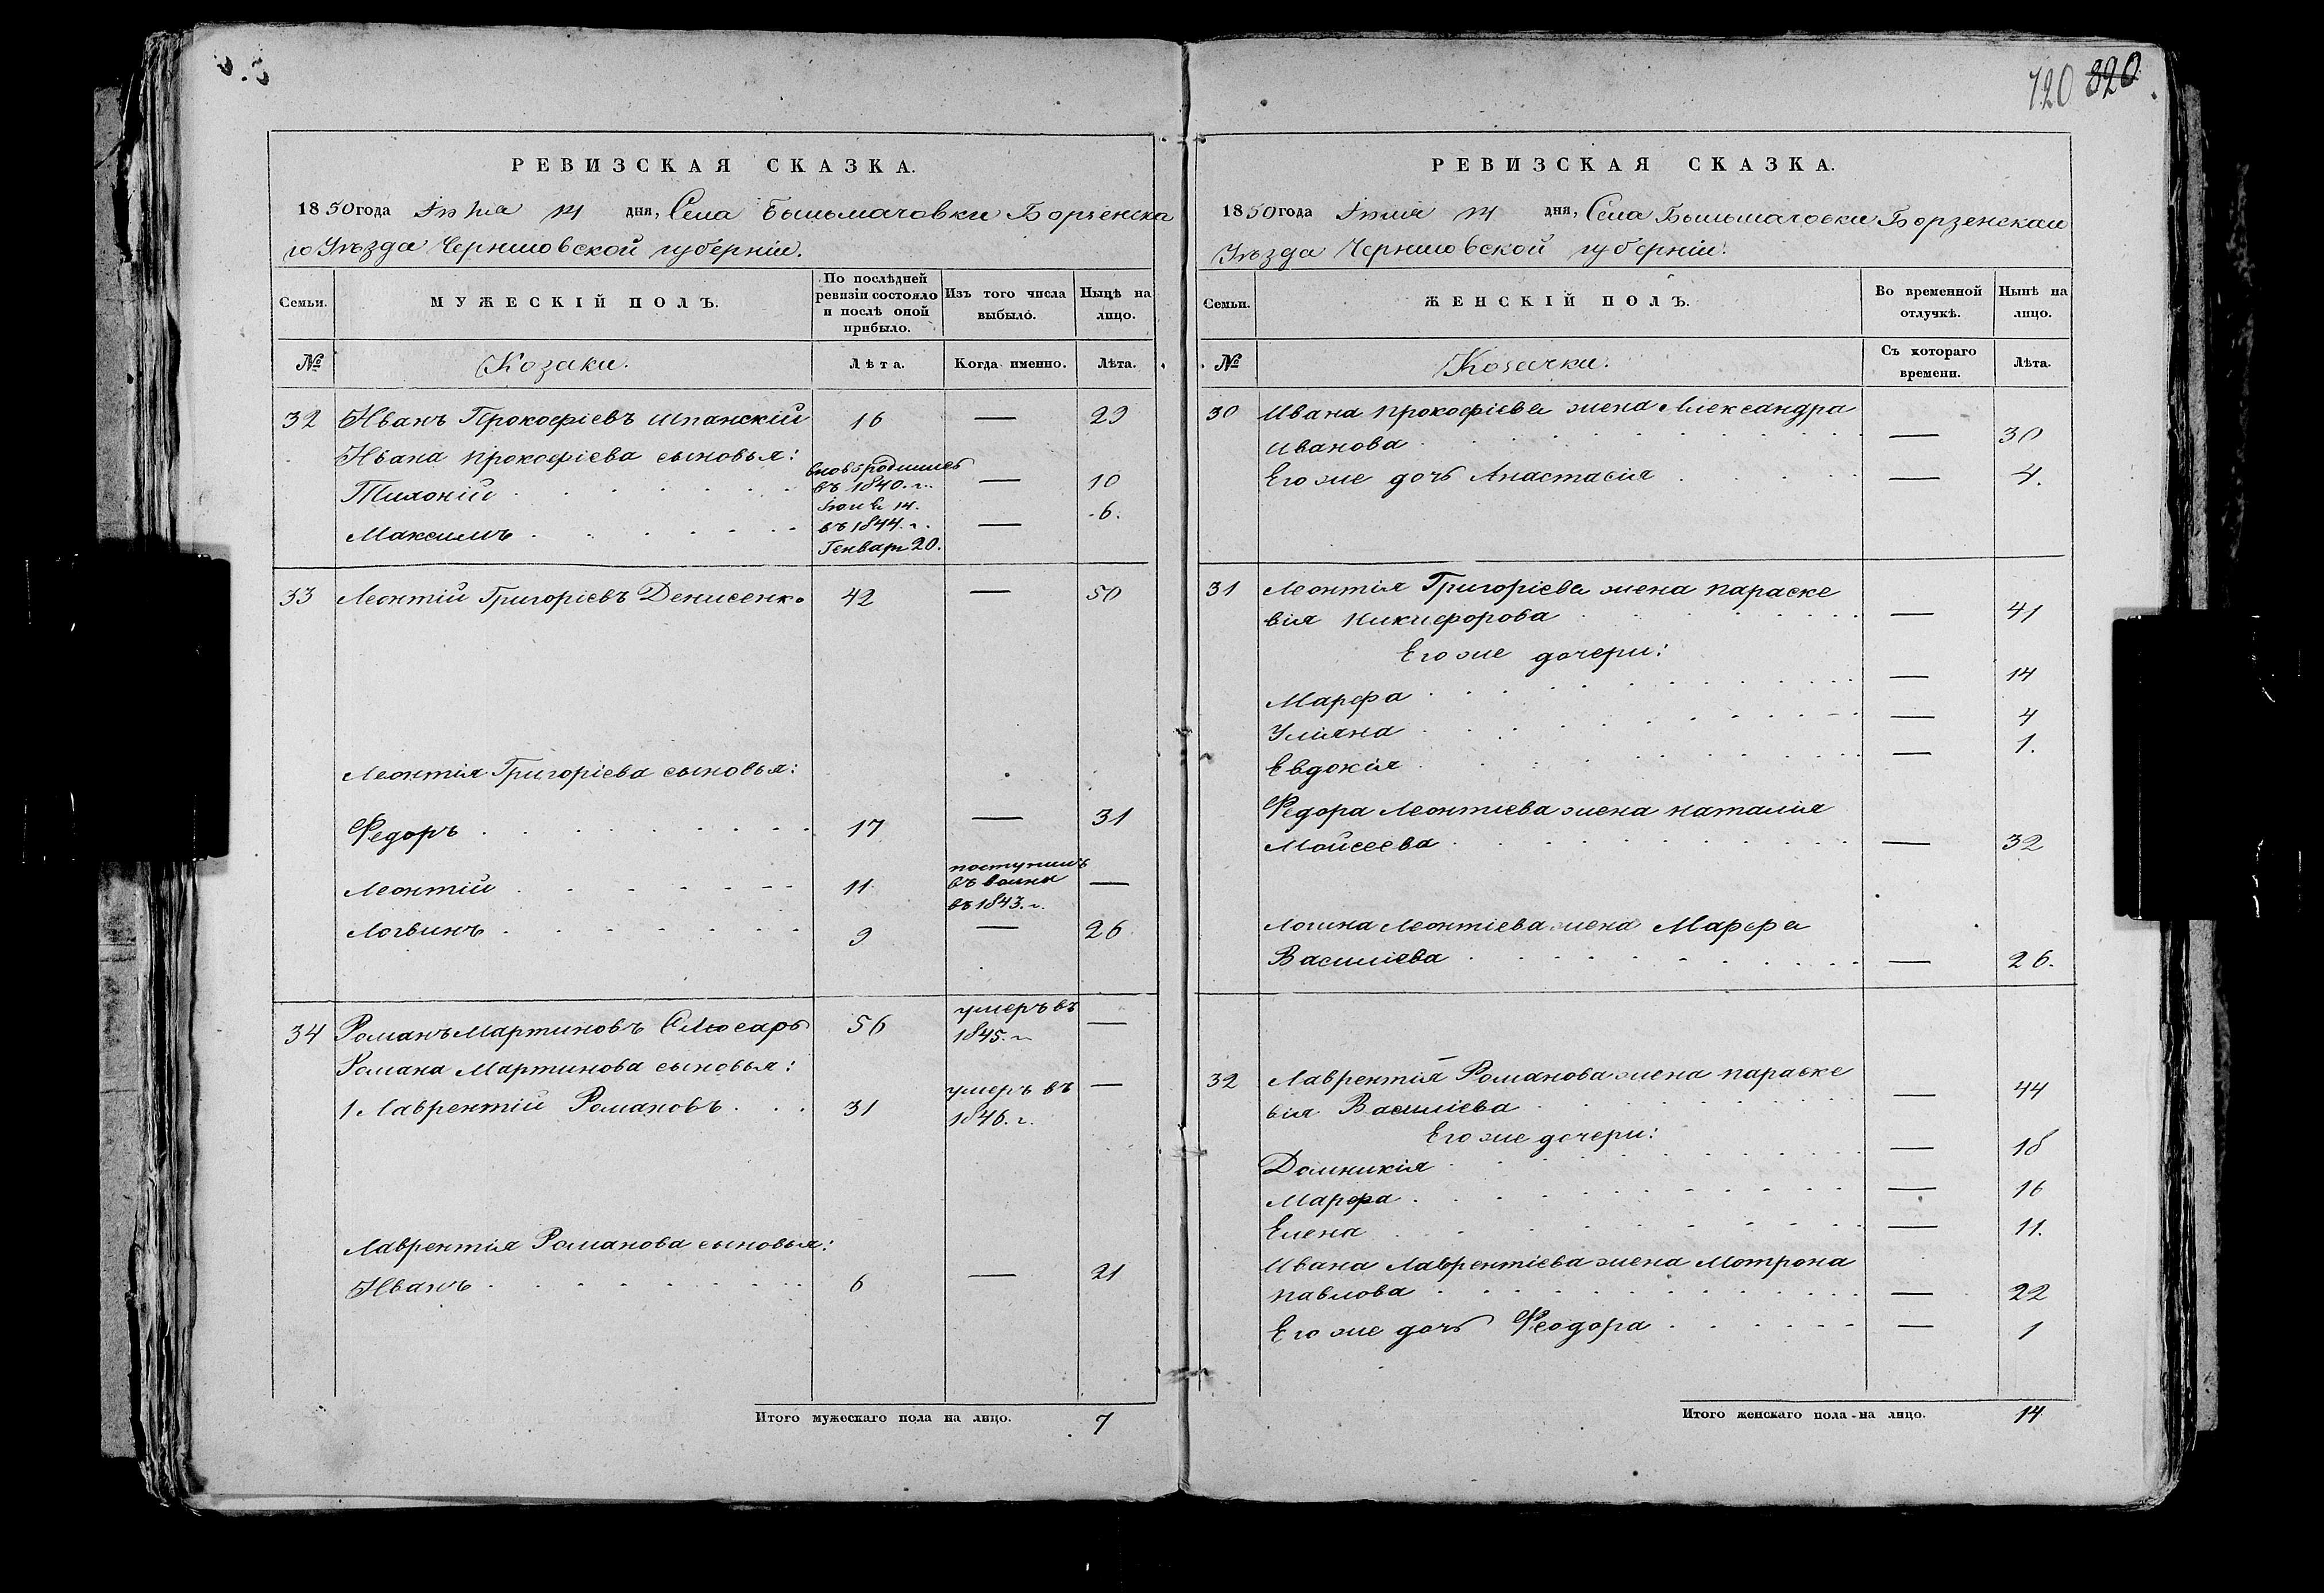 120 820
РЕВИЗСКАЯ СКАЗКА.
1850 года Іюня 14 дня, Села Бышьмачовки Борзенска
го Уѣзда Черниговской губерніи.
Семьи.
МУЖЕСКІЙ ПОЛЪ.
По послѣдней ревизіи состояло и послѣ оной прибыло.
Изъ того числа выбыло.
Нынѣ на лицо.
№ Козаки. Лѣта. Когда именно. Лѣта.
32 Иванъ Прокофіевъ Шпанскій 16 — 29
Ивана Прокофіева сыновья:
Тихоній вновь родились въ 1840. г. Іюня 14. — 10
Максимъ въ 1844. г. Генвар. 20. — 6.
33 Леонтій Григоріевъ Денисенко 42 — 50
Леонтія Григоріева сыновья:
Федоръ 17 — 31
Леонтій 11. поступилъ въ воины въ 1843. г. —
Логвинъ 9 — 26
34 Романъ Мартиновъ Слюсарь 56 умеръ въ 1845. г. —
Романа Мартинова сыновья:
1 Лаврентій Романовъ 31 умеръ въ 1846. г. —
Лаврентія Романова сыновья:
Иванъ 6 — 21
Итого мужескаго пола на лицо. 7
РЕВИЗСКАЯ СКАЗКА.
1850 года Іюня 14 дня, Села Бышьмачовки Борзенскаго
Уѣзда Черниговской губерніи.
Семьи.
ЖЕНСКІЙ ПОЛЪ.
Во временной отлучкѣ.
Нынѣ на лицо.
№ Козачки. Съ котораго времени. Лѣта.
30 Ивана Прокофіева жена Александра
Иванова — 30
Его же дочь Анастасія — 4.
31 Леонтія Григоріева жена Параске
вія Никифорова — 41
Его же дочери:
Марфа — 14
Уліяна — 4
Евдокія — 1.
Федора Леонтіева жена Наталія
Мойсеева — 32
Логина Леонтіева жена Марфа
Василіева — 26.
32 Лаврентія Романова жена Параске
вія Василіева — 44
Его же дочери:
Домникія — 18
Марфа — 16
Елена — 11.
Ивана Лаврентіева жена Мотрона
Павлова — 22
Его же дочь Феодора — 1
Итого женскаго пола на лицо. 14